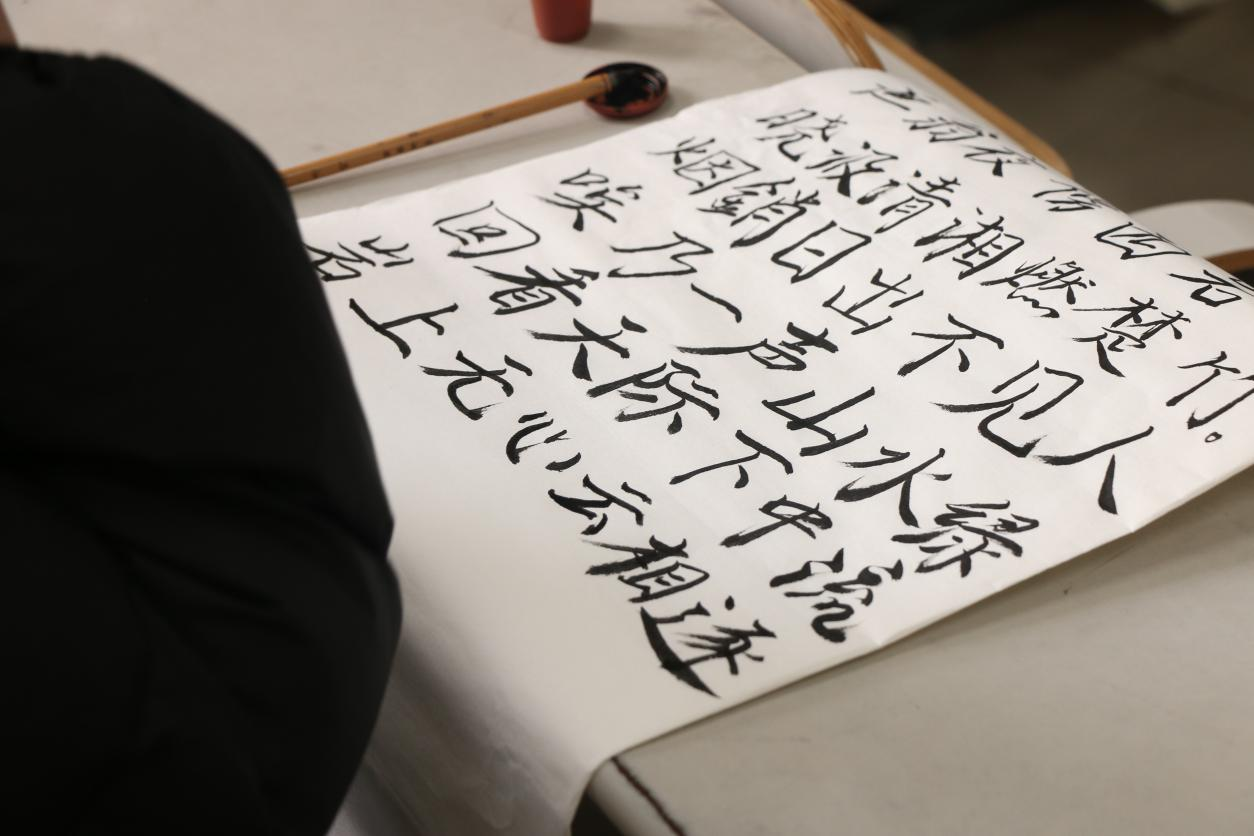 渔翁夜傍西
晓汲清湘燃楚竹。
烟銷日出不见人
唉乃一声山水绿
回看天际下中流
岩上无心云相逐